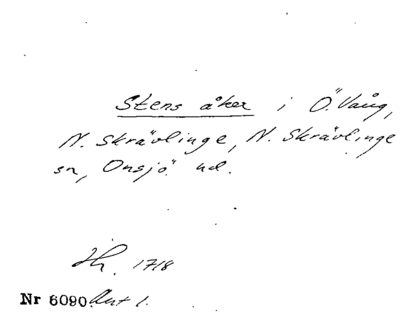 Stens åker i Ö. Vång,
N. Skrävlinge, N. Skrävlinge
sn, Onsjö hd.
Hh. 1718
Nr 6090. Ant 1.